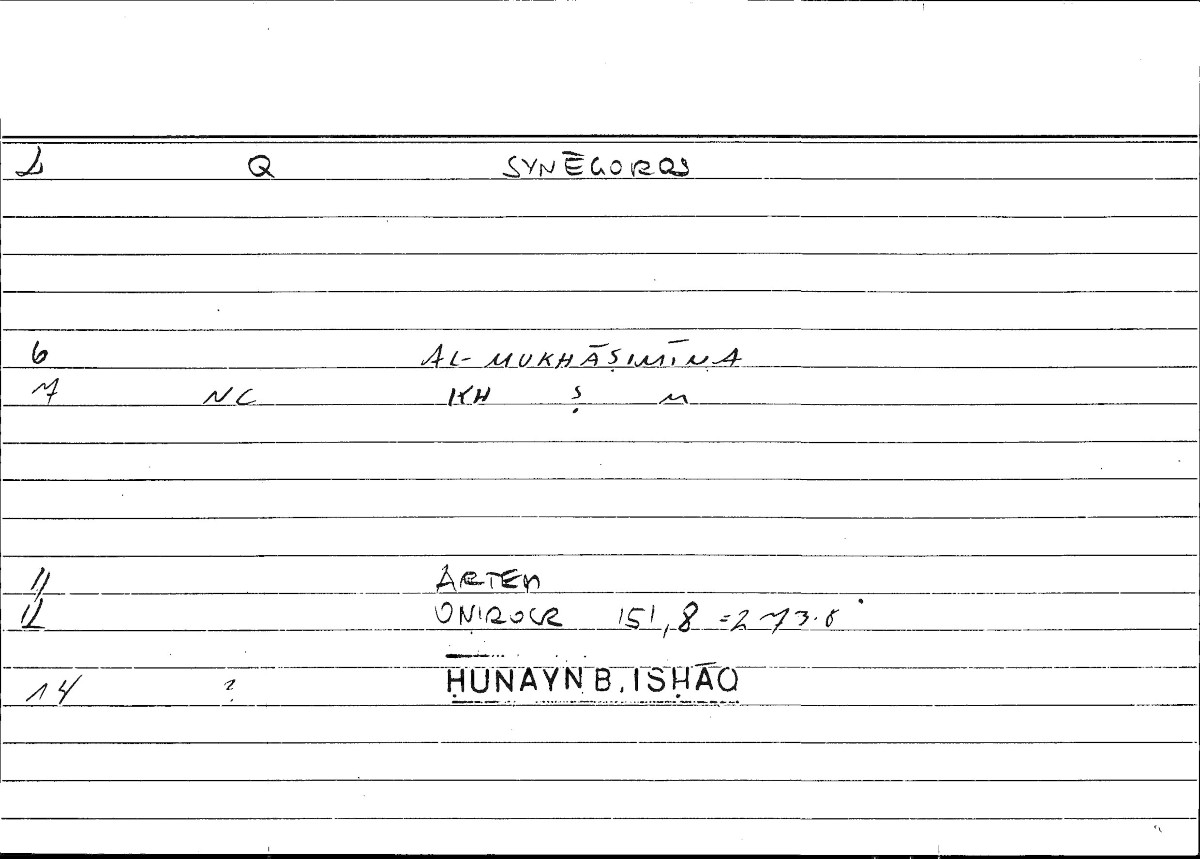 2 Q SYNĒGOROS
6 AL-MUKHĀṢIMĪNA
7 NC KH Ṣ M
11 ARTEM
12 ONIROCR 151,8 = 273.8
14 ? ḤUNAYN B. ISḤĀQ